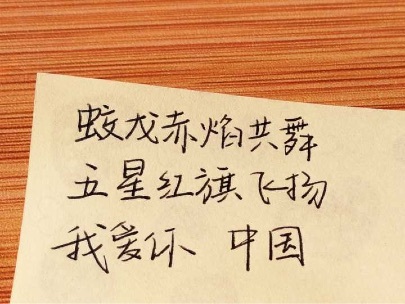 蛟龙赤焰共舞
五星红旗飞扬
我爱你 中国